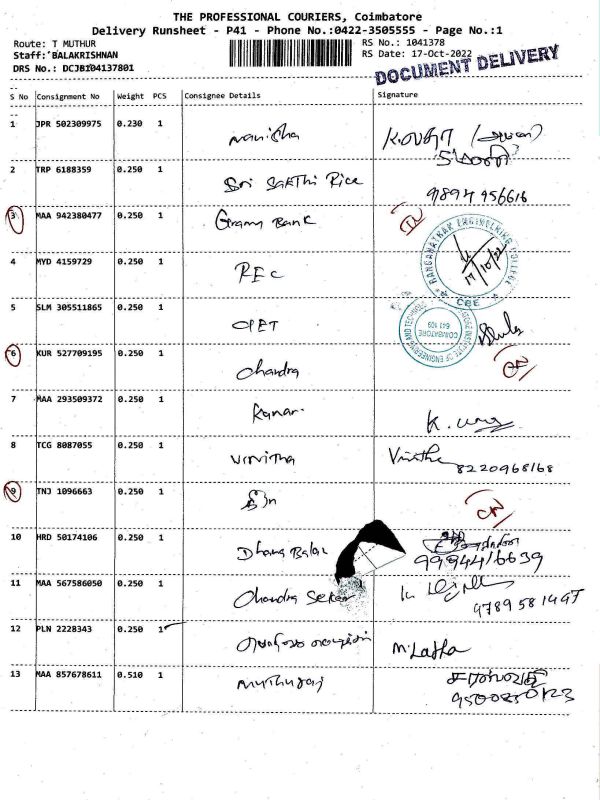 THE PROFESSIONAL COURIERS, Coimbatore
Delivery Runsheet - P41 - Phone No.:0422-3505555 - Page No.:1
Route: T MUTHUR RS No.: 1041378
Staff: BALAKRISHNAN RS Date: 17-Oct-2022
DRS No.: DCJB104137801
DOCUMENT DELIVERY
S No Consignment No Weight PCS Consignee Details Signature
1 JPR 502309975 0.230 1
2 TRP 6188359 0.250 1 Sri Sakthi Rice
9894956616
3 MAA 942380477 0.250 1 Bank
RANGANATHAN ENGINEERING COLLEGE
CBE
17/10/22
4 MYD 4159729 0.250 1 REC
5 SLM 305511865 0.250 1 CIET
INSTITUTE OF ENGINEERING AND TECHNOLOGY
COIMBATORE
641 109
6 KUR 527709195 0.250 1 Chandra
7 MAA 293509372 0.250 1
8 TCG 8087055 0.250 1 Vinitha
8220968168
9 TNJ 1096663 0.250 1
10 HRD 50174106 0.250 1 Dhana Balan
9994416639
11 MAA 567586050 0.250 1 Chandra Sekar
12 PLN 2228343 0.250 1 M. Latha
13 MAA 857678611 0.510 1 Muthuraj